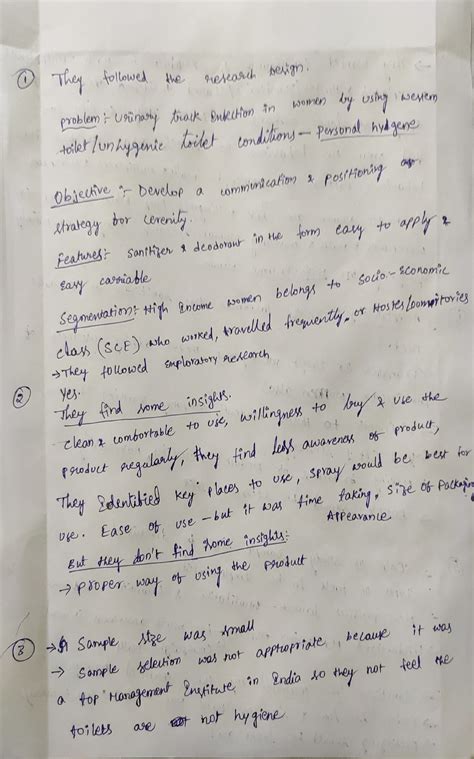 ① They followed the research Design.
problem:- Urinary track Infection in women by using western
toilet/unhygenic toilet conditions – Personal hydgene
Objective:- Develop a communication & positioning
strategy for Cerenity.
Features:- Sanitizer & deodorant in the form easy to apply &
Easy carriable
Segmentation:- High Income women belongs to Socio-Economic
class (SCE) who worked, travelled frequently, or Hostes/Dormitories
→ They followed exploratory research
② Yes.
They find some insights.
clean & comfortable to use, willingness to buy & use the
product regularly, they find less awareness of product,
They Identified key places to use, spray would be best for
use. Ease of use – but it was time taking, Size of Packaging
Appearance
But they don't find some insights:-
→ proper way of using the product
③ → Sample size was small
→ Sample selection was not appropriate, because it was
a top Management Institute in India so they not feel the
toilets are not hygiene